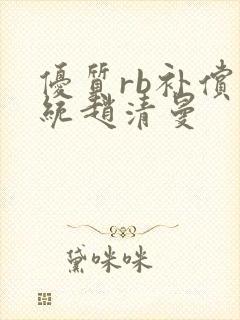 優質rb补償
統趙清曼
黛咪咪